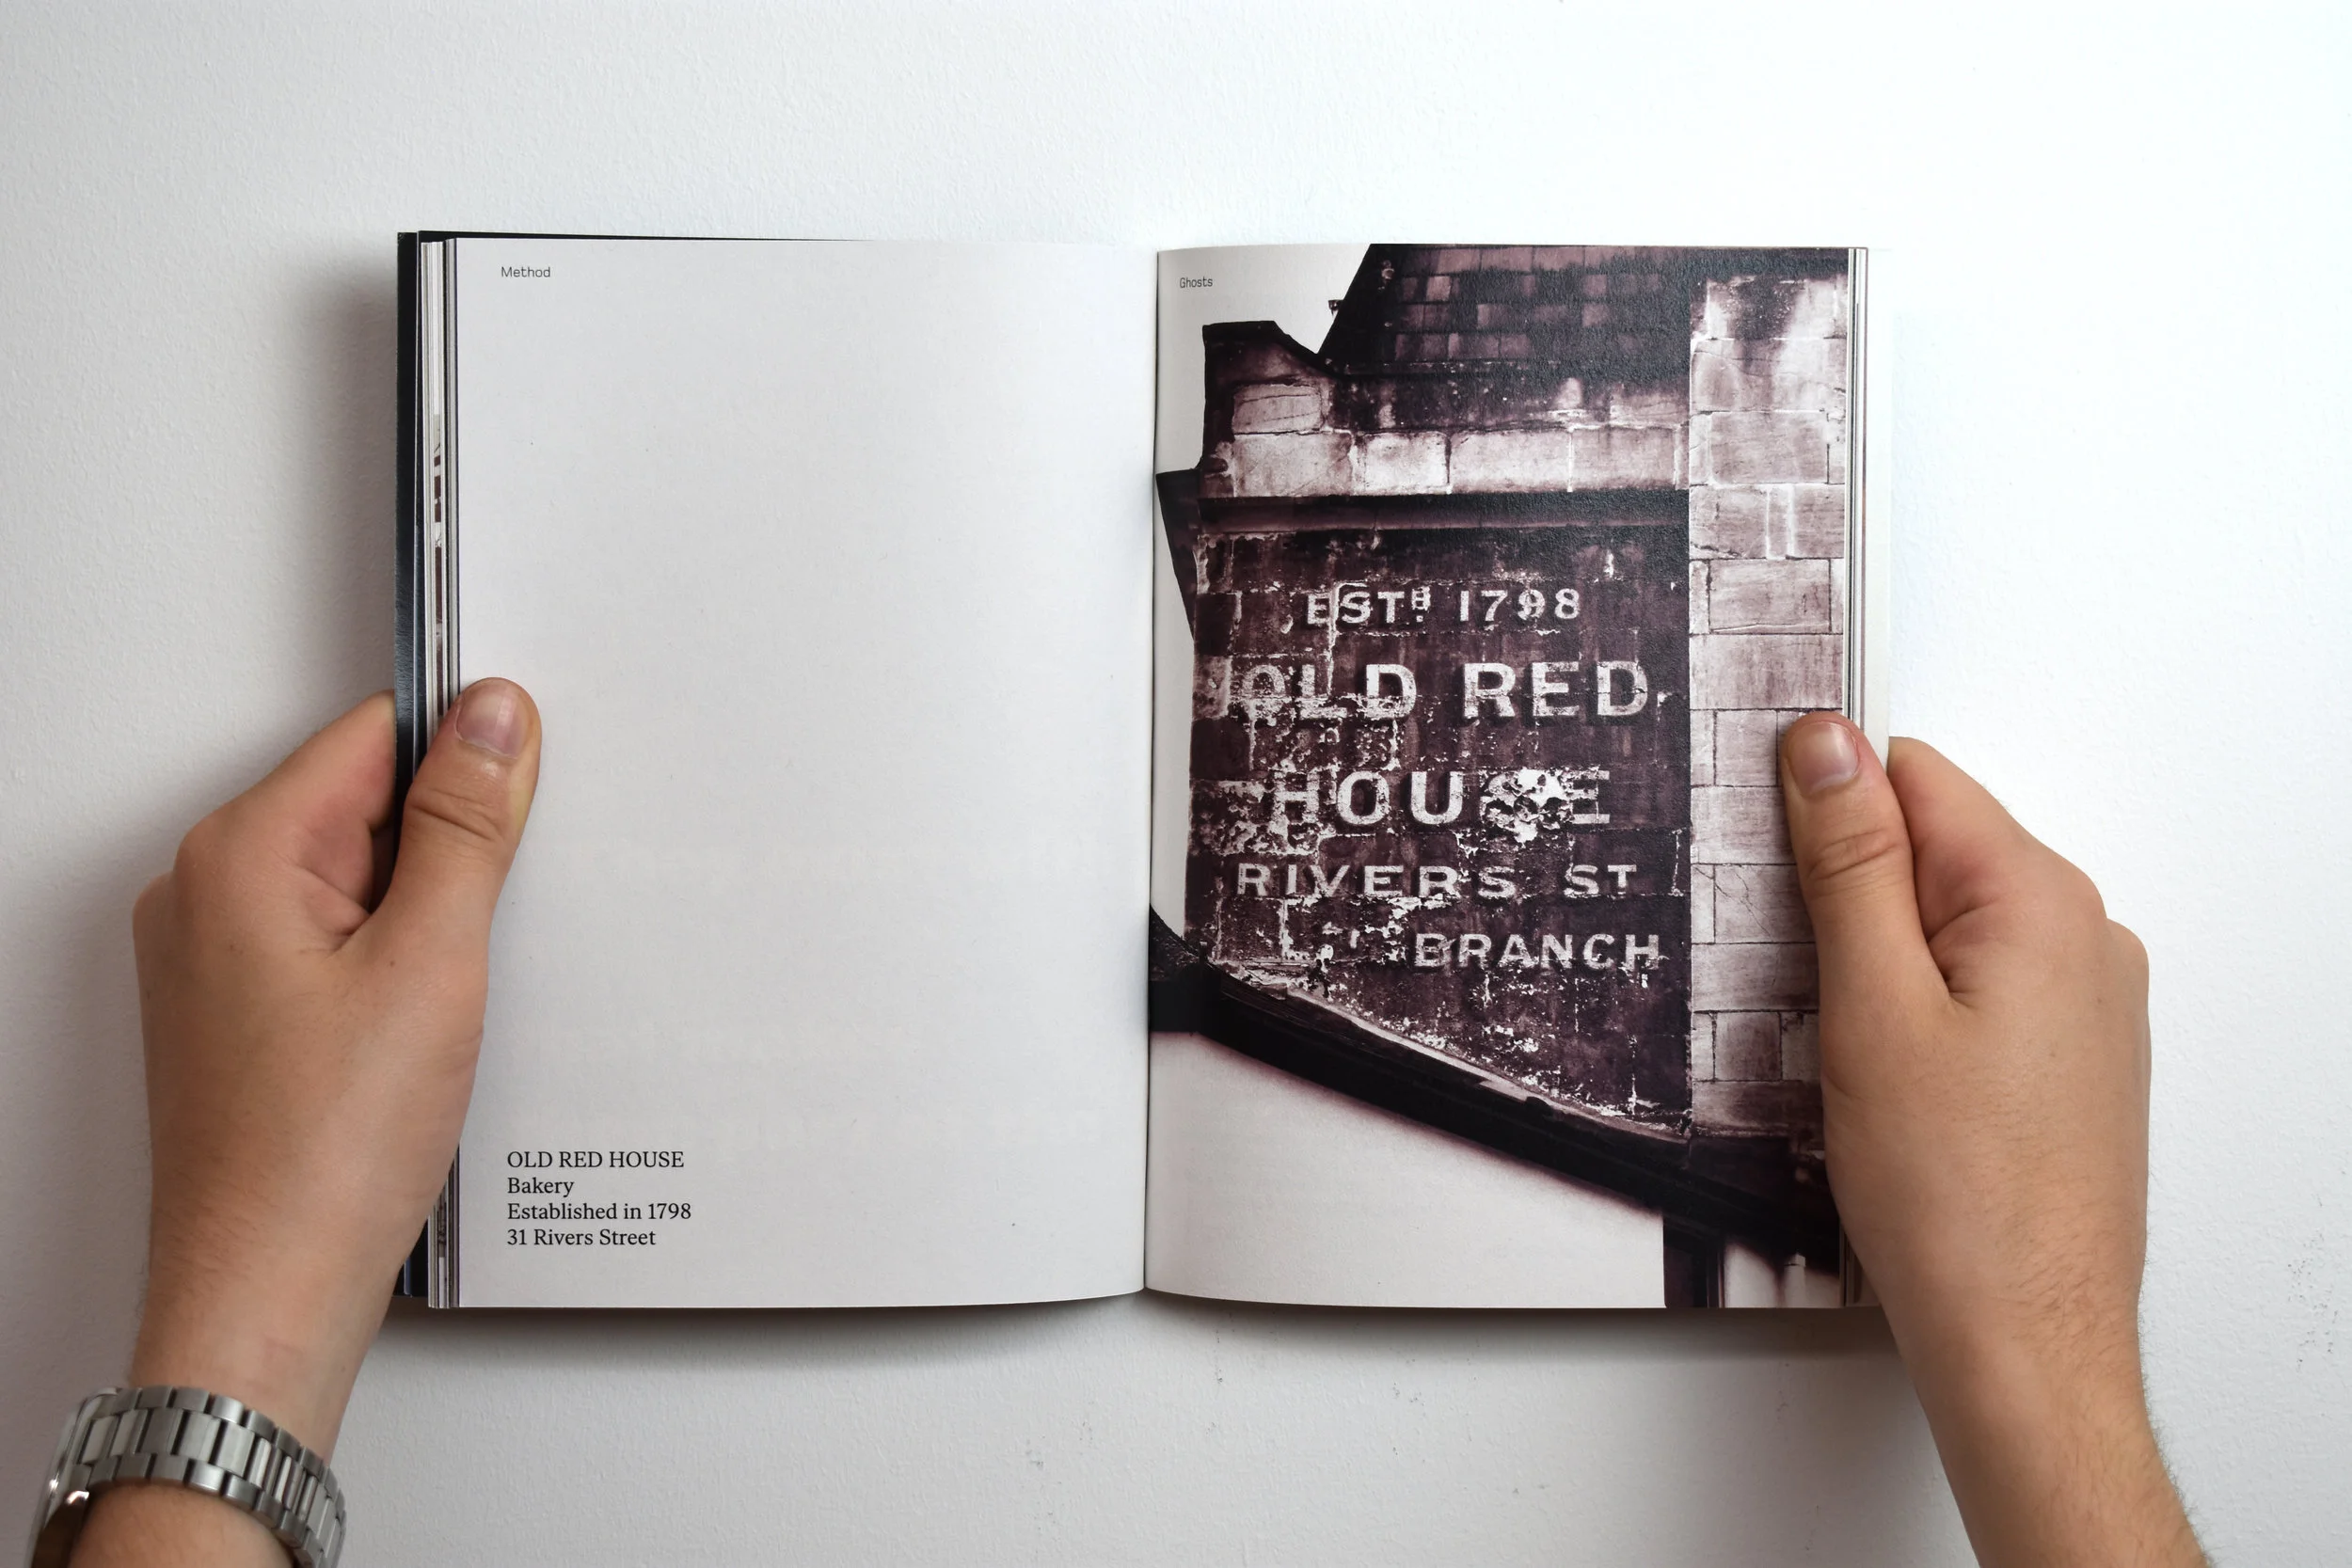 Method
OLD RED HOUSE
Bakery
Established in 1798
31 Rivers Street
Ghosts
ESTD. 1798
OLD RED
HOUSE
RIVERS ST
BRANCH